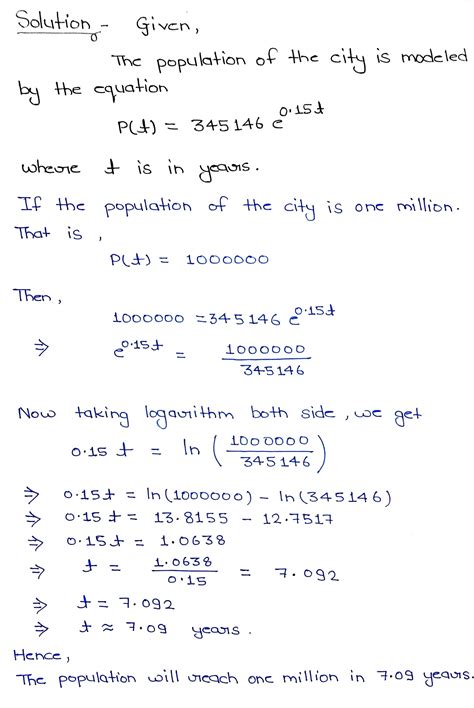 Solution - Given,
The population of the city is modeled
by the equation
P(t) = 345146 e^0.15t
where t is in years.
If the population of the city is one million.
That is,
P(t) = 1000000
Then,
1000000 = 345146 e^0.15t
⇒ e^0.15t = 1000000/345146
Now taking logarithm both side, we get
0.15 t = ln (1000000/345146)
⇒ 0.15t = ln(1000000) - ln(345146)
⇒ 0.15t = 13.8155 - 12.7517
⇒ 0.15t = 1.0638
⇒ t = 1.0638/0.15 = 7.092
⇒ t = 7.092
⇒ t ≈ 7.09 years.
Hence,
The population will reach one million in 7.09 years.